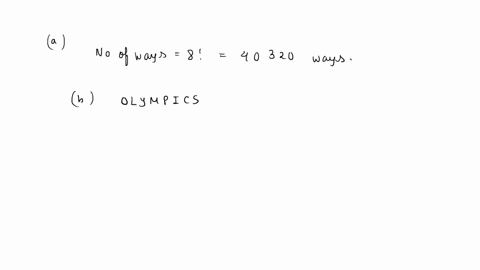 (a)
No of ways = 8! = 40320 ways.
(b) OLYMPICS